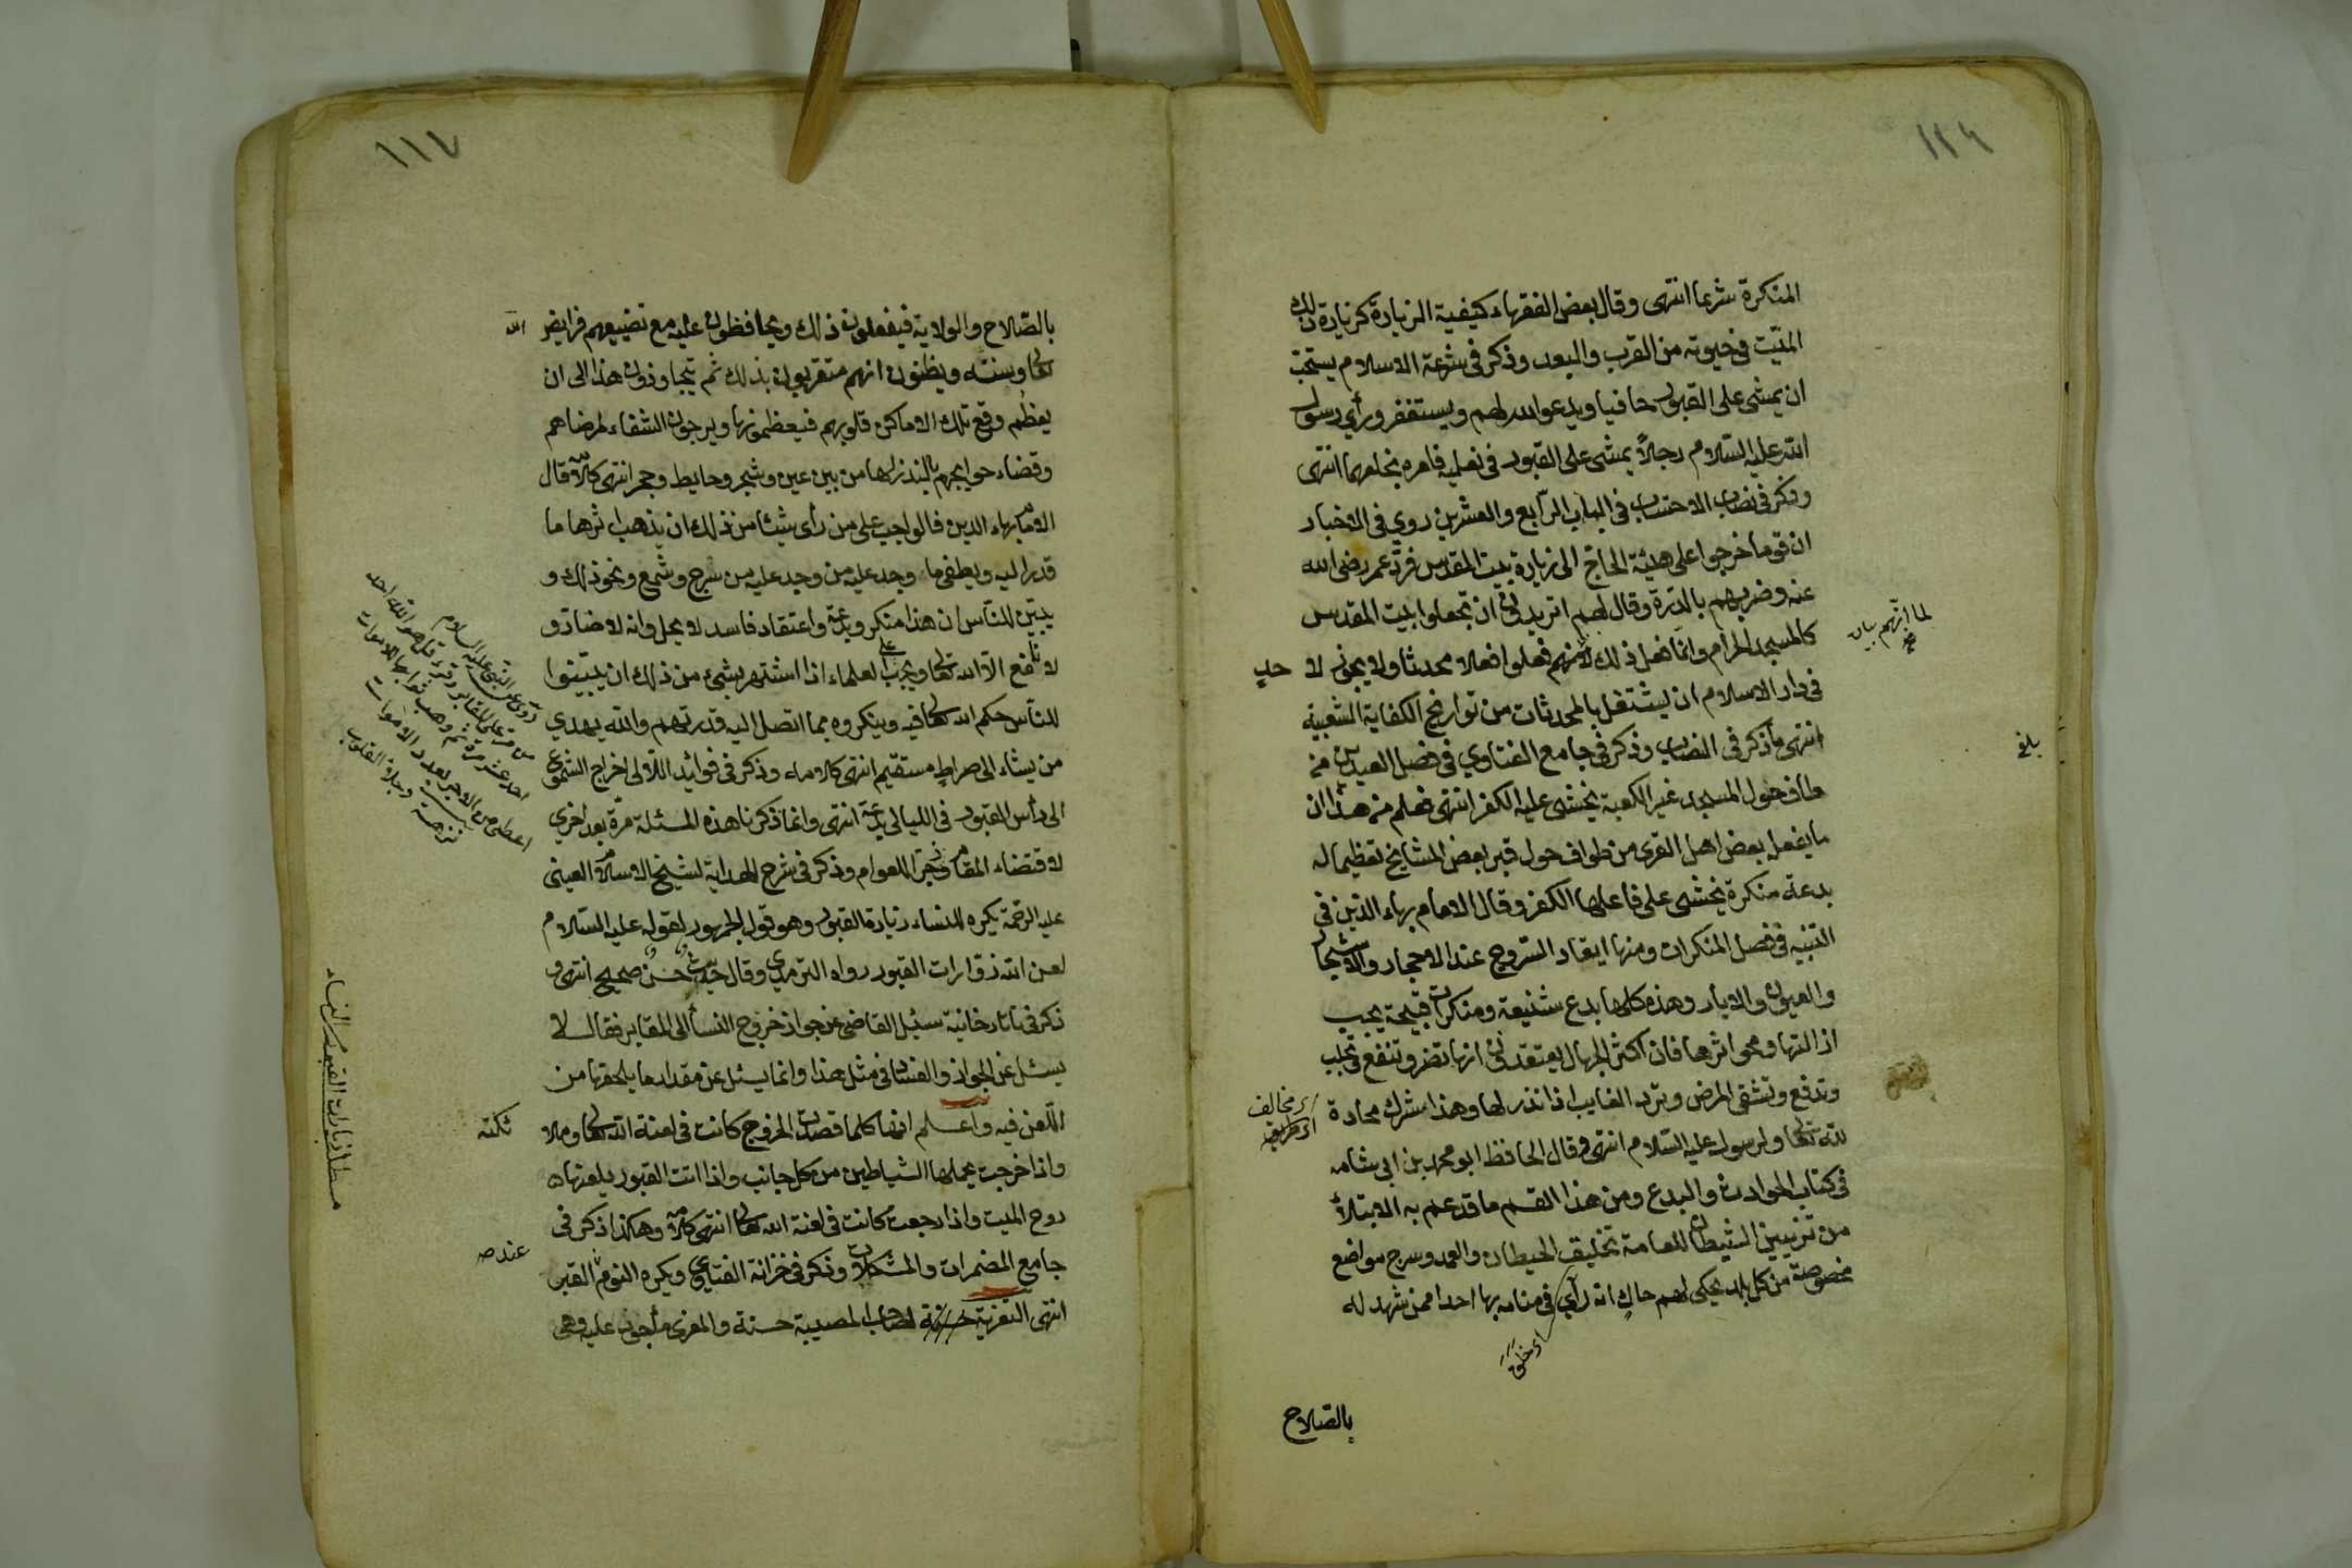 ١١٦
المنكرة شرعا انتهى وقال بعض الفقهاء كيفية الزيارة كزيارة ذلك
الميّت في حيوته من القرب والبعد وذكر في شرعة الاسلام يستحبّ
ان يمشى على القبور حافيا ويدعو الله لهم ويستغفر ورأي رسول
الله عليه السّلام رجلاً يمشى على القبور في نعليه فامره بخلعهما انتهى
وذكر في نصاب الاحتساب في الباب الرّابع والعشرين روي في الاخبار
ان قوما خرجوا على هيئة الحاجّ الى زيارة بيت المقدس فردّ عمر رضى الله
عنه وضربهم بالدرّة وقال لهم اتريدون ان تجعلوا بيت المقدس
كالمسجد الحرام وانّما فعل ذلك لانّهم فعلوا فعلا محدثا ولا يجوز لا حد
في دار الاسلام ان يشتغل بالمحدثات من تواريخ الكفاية الشعبية
انتهى ما ذكر في النصاب وذكر في جامع الفتاوي في فصل العيدين من
طاف حول المسجد غير الكعبة يخشى عليه الكفر انتهى فعلم من هذا ان
ما يفعله بعض اهل القرى من طواف حول قبر بعض المشايخ تعظيما له
بدعة منكرة يخشى على فاعلها الكفر وقال الامام بهاء الدّين في
التنبيه في فصل المنكرات ومنها ايقاد السّروج عند الاحجار والاشجار
والعيون والابار وهذه كلها بدع شنيعة ومنكرات قبيحة يجب
ازالتها ومحو اثرها فان اكثر الجهال يعتقدون انها تضر وتنفع وتجلب
وتدفع وتشفى المرض وتردّ الغايب اذا نذر لها وهذا شرك محادة
لله تعالى ولرسوله عليه السّلام انتهى وقال الحافظ ابو محمد بن ابي شامه
في كتاب الحوادث والبدع ومن هذا القسم ما قد عم به الابتلاء
من تزيين الشيطان للعامة تخليق الحيطان والعمد وسرج مواضع
مخصوصة من كل بلد يحكى لهم حاكٍ انه رأي في منامه بها احدا ممن شهد له
بالصّلاح
لما انّهم
بلغ
اي مخالف
اي خلق
١١٧
بالصّلاح والولاية فيفعلون ذلك ويحافظون عليه مع تضييعهم فرايض الله
تعالى وسننه ويظنون انهم متقربون بذلك ثم يتجاوزون هذا الى ان
يعظُم وقع تلك الاماكن قلوبهم فيعظمونها ويرجون الشفاء لمرضاهم
وقضاء حوايجهم بالنذر لها من بين عين وشجر وحايط وحجر انتهى كلامه قال
الامام بهاء الدين فالواجب على من رأى شيئا من ذلك ان يذهب اثرها ما
قدر اليه ويطفى ما وجد عليه من وجد عليه من سرج وشمع ونحو ذلك و
يبيّن للنّاس ان هذا منكر وبدعة واعتقاد فاسد لا يحل وانه لا ضارّ و
لا نافع الّا الله تعالى ويجب على العلماء اذا اشتهر بشيء من ذلك ان يبيّنوا
للنّاس حكم الله تعالى فيه وينكروه مما اتصل اليه قدرتهم والله يهدي
من يشاء الى صراط مستقيم انتهى كلامه وذكر في فوائد اللآلى اخراج الشموع
الى رأس القبور في الليالى بدعة انتهى وانما ذكرنا هذه المسئلة مرّة بعد اخرى
لاقتضاء المقام وزجرا للعوام وذكر في شرح الهداية لشيخ الاسلام العينى
عليه الرّحمة يكره للنساء زيارة القبور وهو قول الجمهور لقوله عليه السّلام
لعن الله زوّارات القبور رواه الترمدي وقال حديث حسن صحيح انتهى و
ذكر في تاتارخانية سئل القاضى عن جواز خروج النسأ الى المقابر فقال لا
يسئل عن الجواز والفساد في مثل هذا وانما يسئل عن مقدار ما يلحقها من
اللّعن فيه واعلم انها كلما قصدت الخروج كانت في لعنة الله تعالى وملا ئكته
واذا خرجت يحملها الشياطين من كل جانب واذا اتت القبور يلعنها
روح الميت واذا رجعت كانت في لعنة الله تعالى انتهى كلامه وهكذا ذكر في
جامع المضمرات والمشكلات وذكر في خزانة الفتاوى ويكره النوم عند القبر
انتهى التعزية لصاحب المصيبة حسنة والمعزى مأجور عليه وهى
روي عن النبي عليه السلام
من مرّ على المقابر وقرء قل هو الله احد
احد عشر مرة ثم وهب ثوابها للاموات
اعطى من الاجر بعدد الاموات
مطلب زيارات القبور من النساء